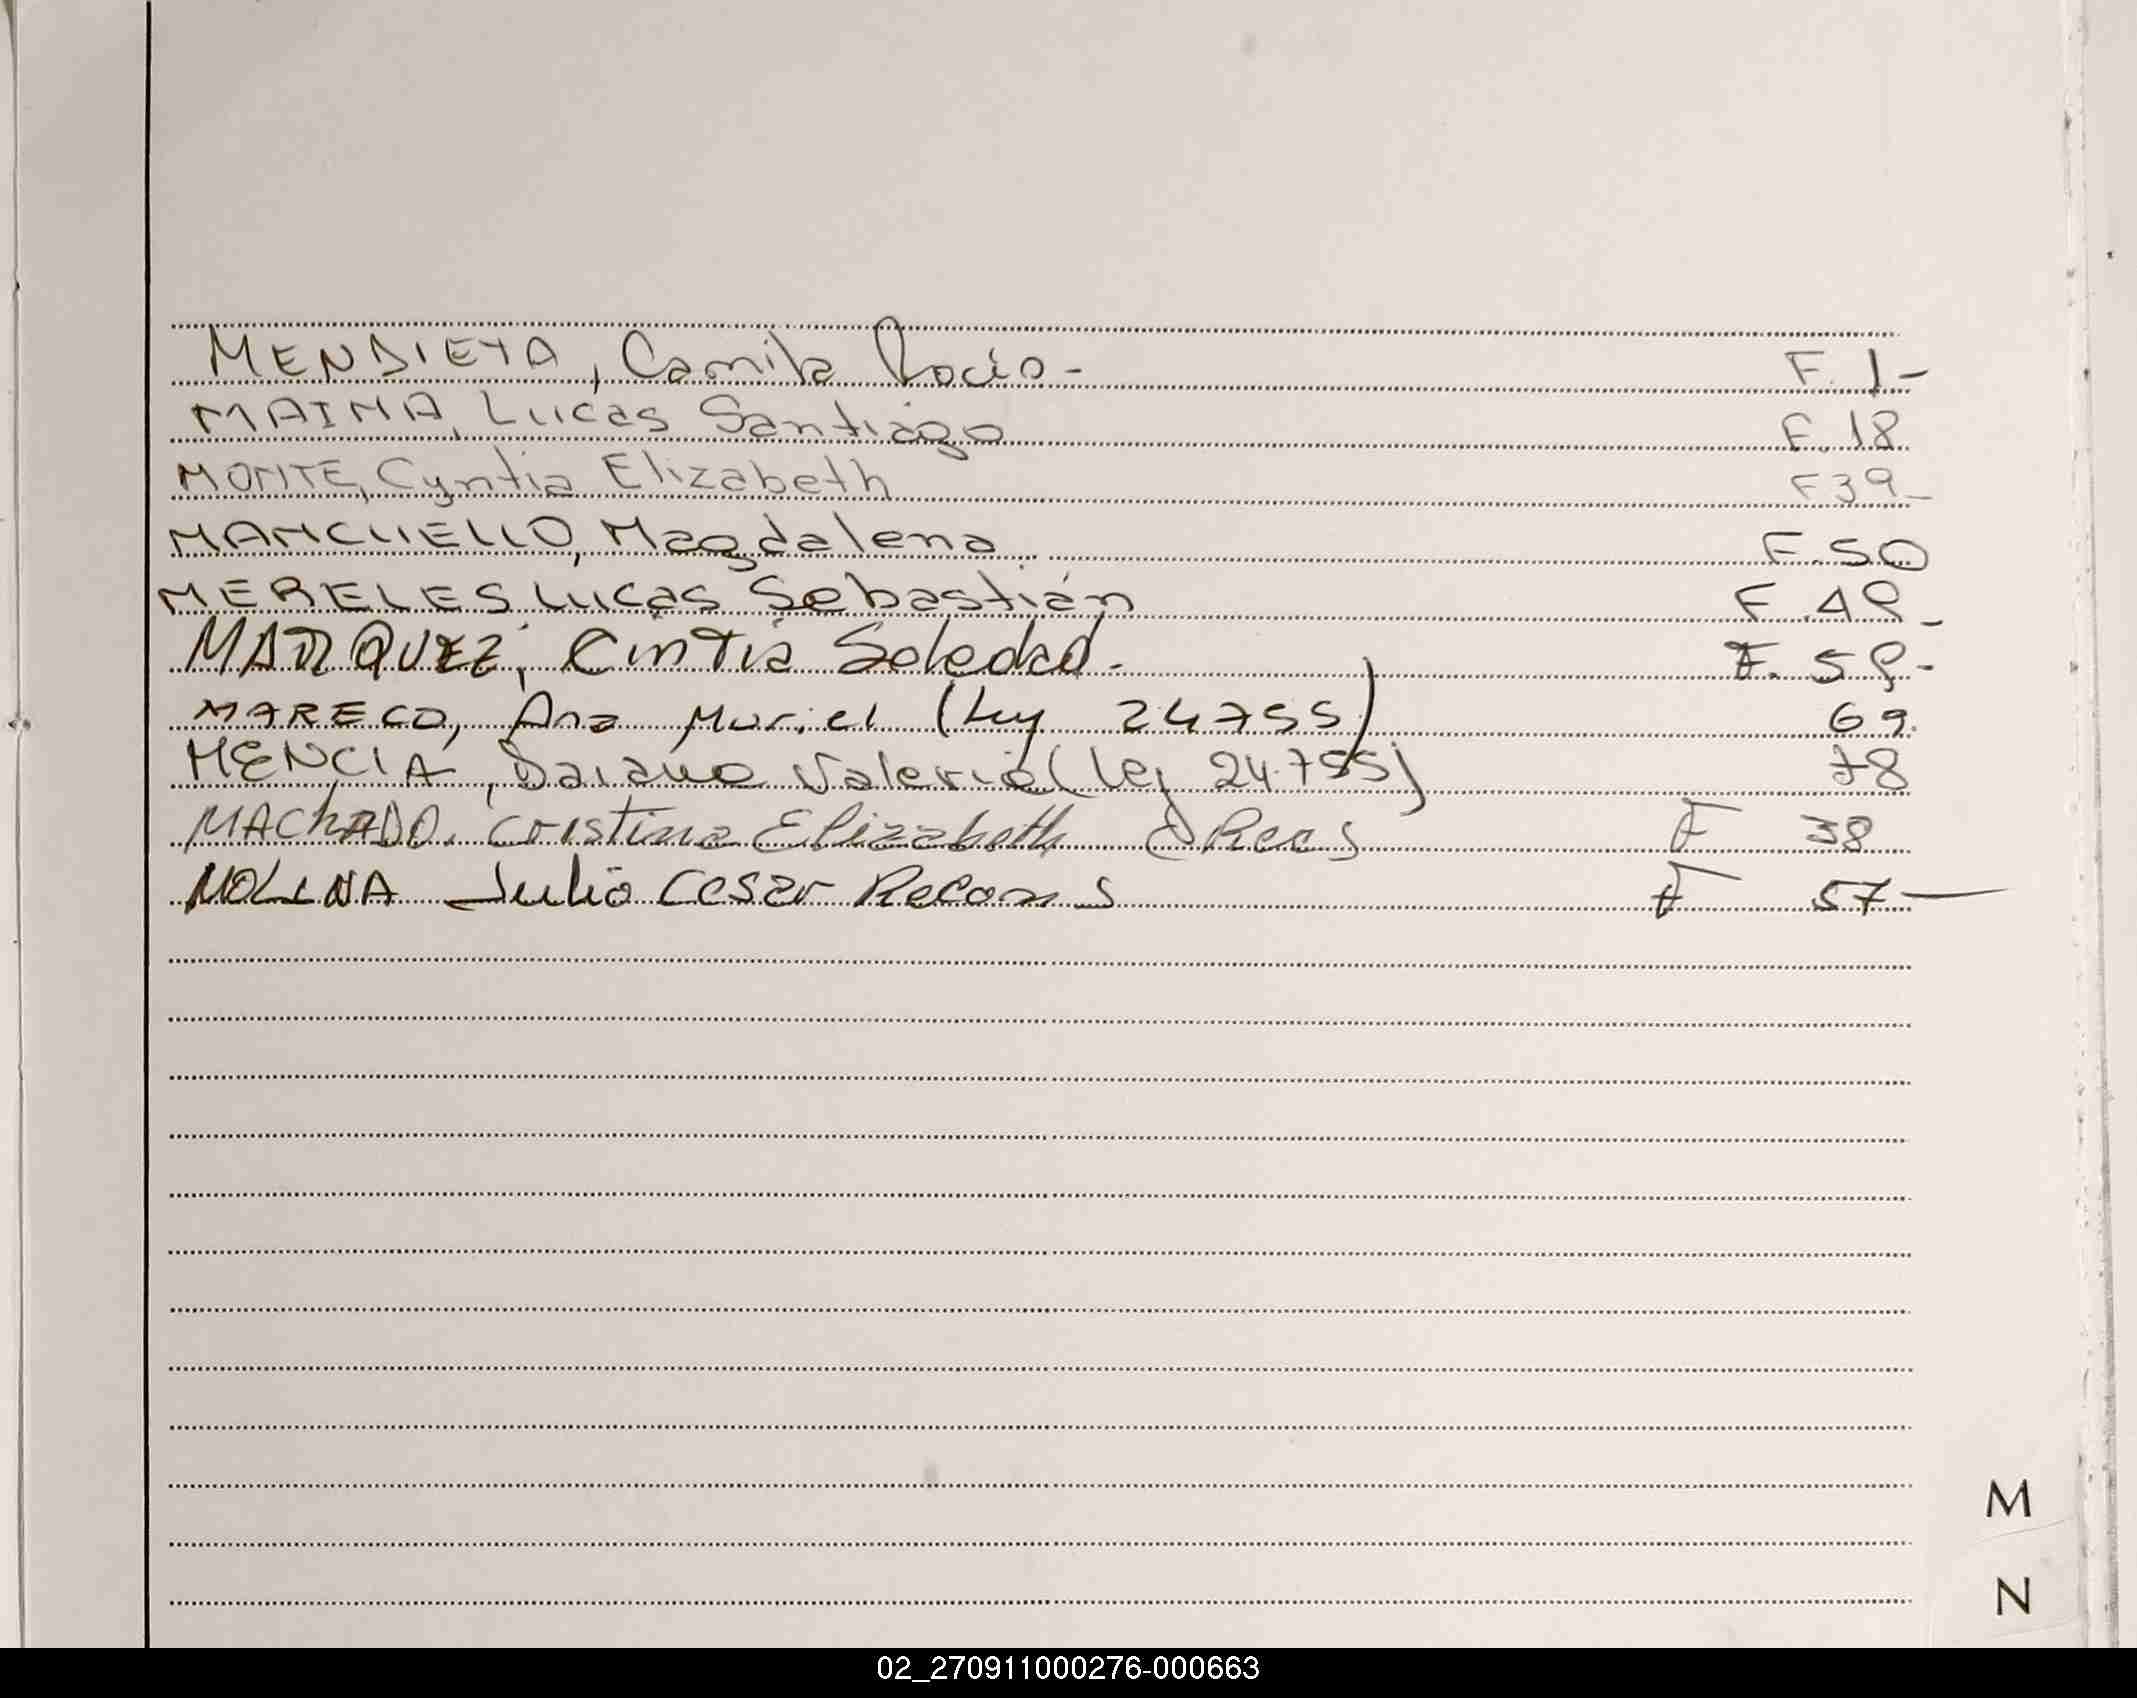 MENDIETA, Camila Rocío - F. 1 -
MAINA, Lucas Santiago F. 18
MONTE, Cyntia Elizabeth F 39 -
MANCUELLO, Magdalena F. 50
MERELES Lucas Sebastián F. 49 -
MARQUEZ, Cintia Soledad. - F. 59 -
MARECO, Ana Muriel (Ley 24755) 69.
MENCIA, Daiana Valeria (Ley 24.755) 78
MACHADO. Cristina Elizabeth F 38
MOLINA Julio Cesar F 57 —
M
N
02_270911000276-000663